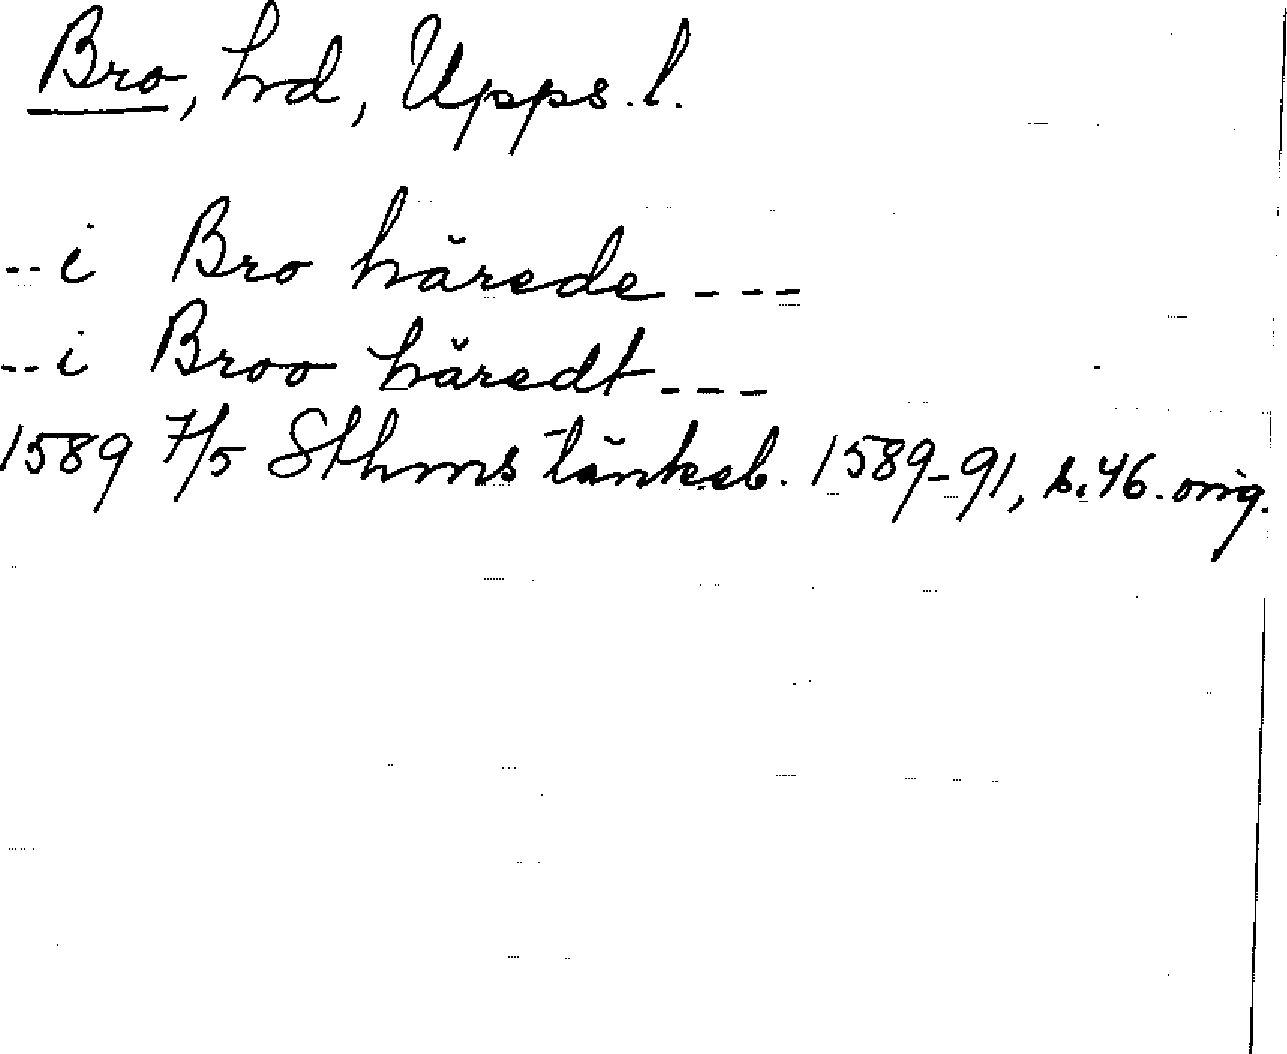 Bro, hd, Upps. l.
-- i Bro härede - - -
-- i Broo häredt - - -
1589 7/5 Sthms tänkeb. 1589-91, s. 46. orig.